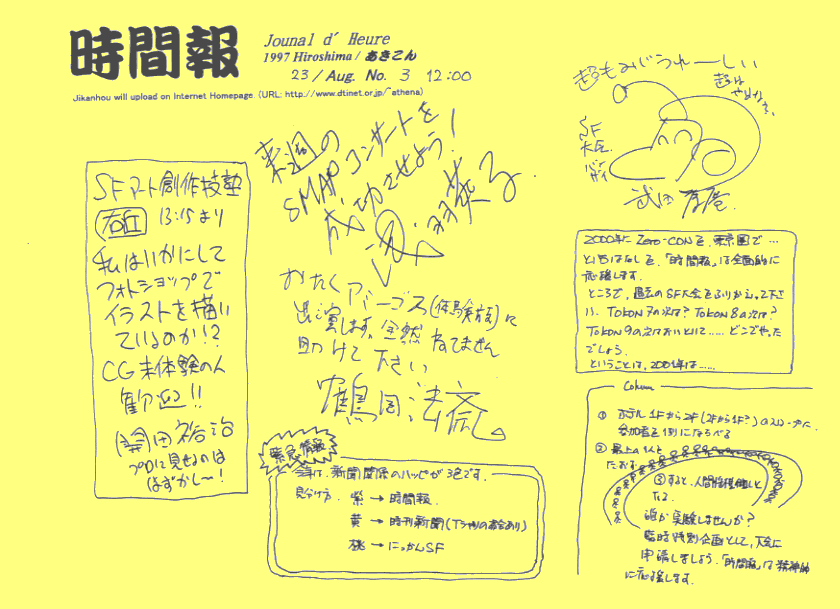 時間報
Jounal d' Heure
1997 Hiroshima / あきこん
23 / Aug. No. 3 12:00
Jikanhou will upload on Internet Homepage. (URL: http://www.dtinet.or.jp/~athena)
SFアート創作技塾
13:15より
私はいかにして
フォトショップで
イラストを描い
ているのか!?
CG未体験の人
歓迎!!
開田裕治
プロに見せるのは
はずかしー!
来週の
SMAPコンサートを
成功させよう!
おたく アバーゴス(体験発表)に
出演します。全然 ねてません
助けて下さい
鶴岡法斎
緊急情報
今年は、新聞関係のハッピが3色です。
見分け方. 紫→時間報.
黄→時刊新聞(Tシャツの場合あり)
桃→にっかんSF
超もみじうれーしい
SF
大臣.
2000年に Zero-CONを、東京圏で…
というはなしを、「時間報」は全面的に
応援します。
ところで、過去のSF大会をふりかえって下さ
い. TOKON 7の次は? TOKON 8の次は?
TOKON 9の次はおいといて…… どこでやった
でしょう.
ということは、2001年は……
Column
① ホテル 1Fから2F(2Fから1F?)のスロープに、
参加者を1列にならべる
② 最上の1人を
たおす
③ すると、人間将棋倒しと
なる.
誰か実験しませんか?
臨時特別企画として、大会に
申請しましょう. 「時間報」は精神的
に応援します.